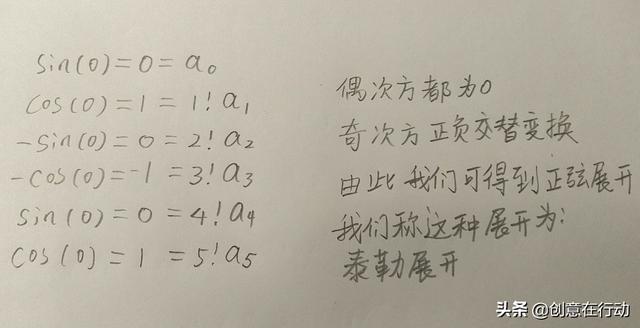 sin(0)=0=a₀
cos(0)=1=1!a₁
-sin(0)=0=2!a₂
-cos(0)=-1=3!a₃
sin(0)=0=4!a₄
cos(0)=1=5!a₅
偶次方都为0
奇次方正负交替变换
由此我们可得到正弦展开
我们称这种展开为:
泰勒展开
头条 @创意在行动